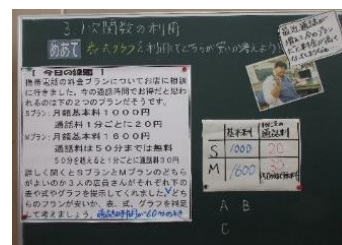 3. 1次関数の利用
めあて 表、式、グラフを利用してどちらが安いか考えよう
[ 今日の課題 ]
携帯電話の料金プランについてお店に相談
に行きました。今の通話時間でお得だと思わ
れるのは下の2つのプランだそうです。
Sプラン：月額基本料1000円
通話料1分ごとに20円
Mプラン：月額基本料1600円
通話料は50分までは無料
50分を超えると1分ごとに通話料30円
詳しく聞くとSプランとMプランのどちら
がよいのか3人の店員さんがそれぞれ下
の表や式やグラフを提示してくれました。どち
らのプランが安いか、表、式、グラフを補足
して考えましょう。
最近通話が
基本料
通話料
S 1000 20
M 1600 30
A B
C